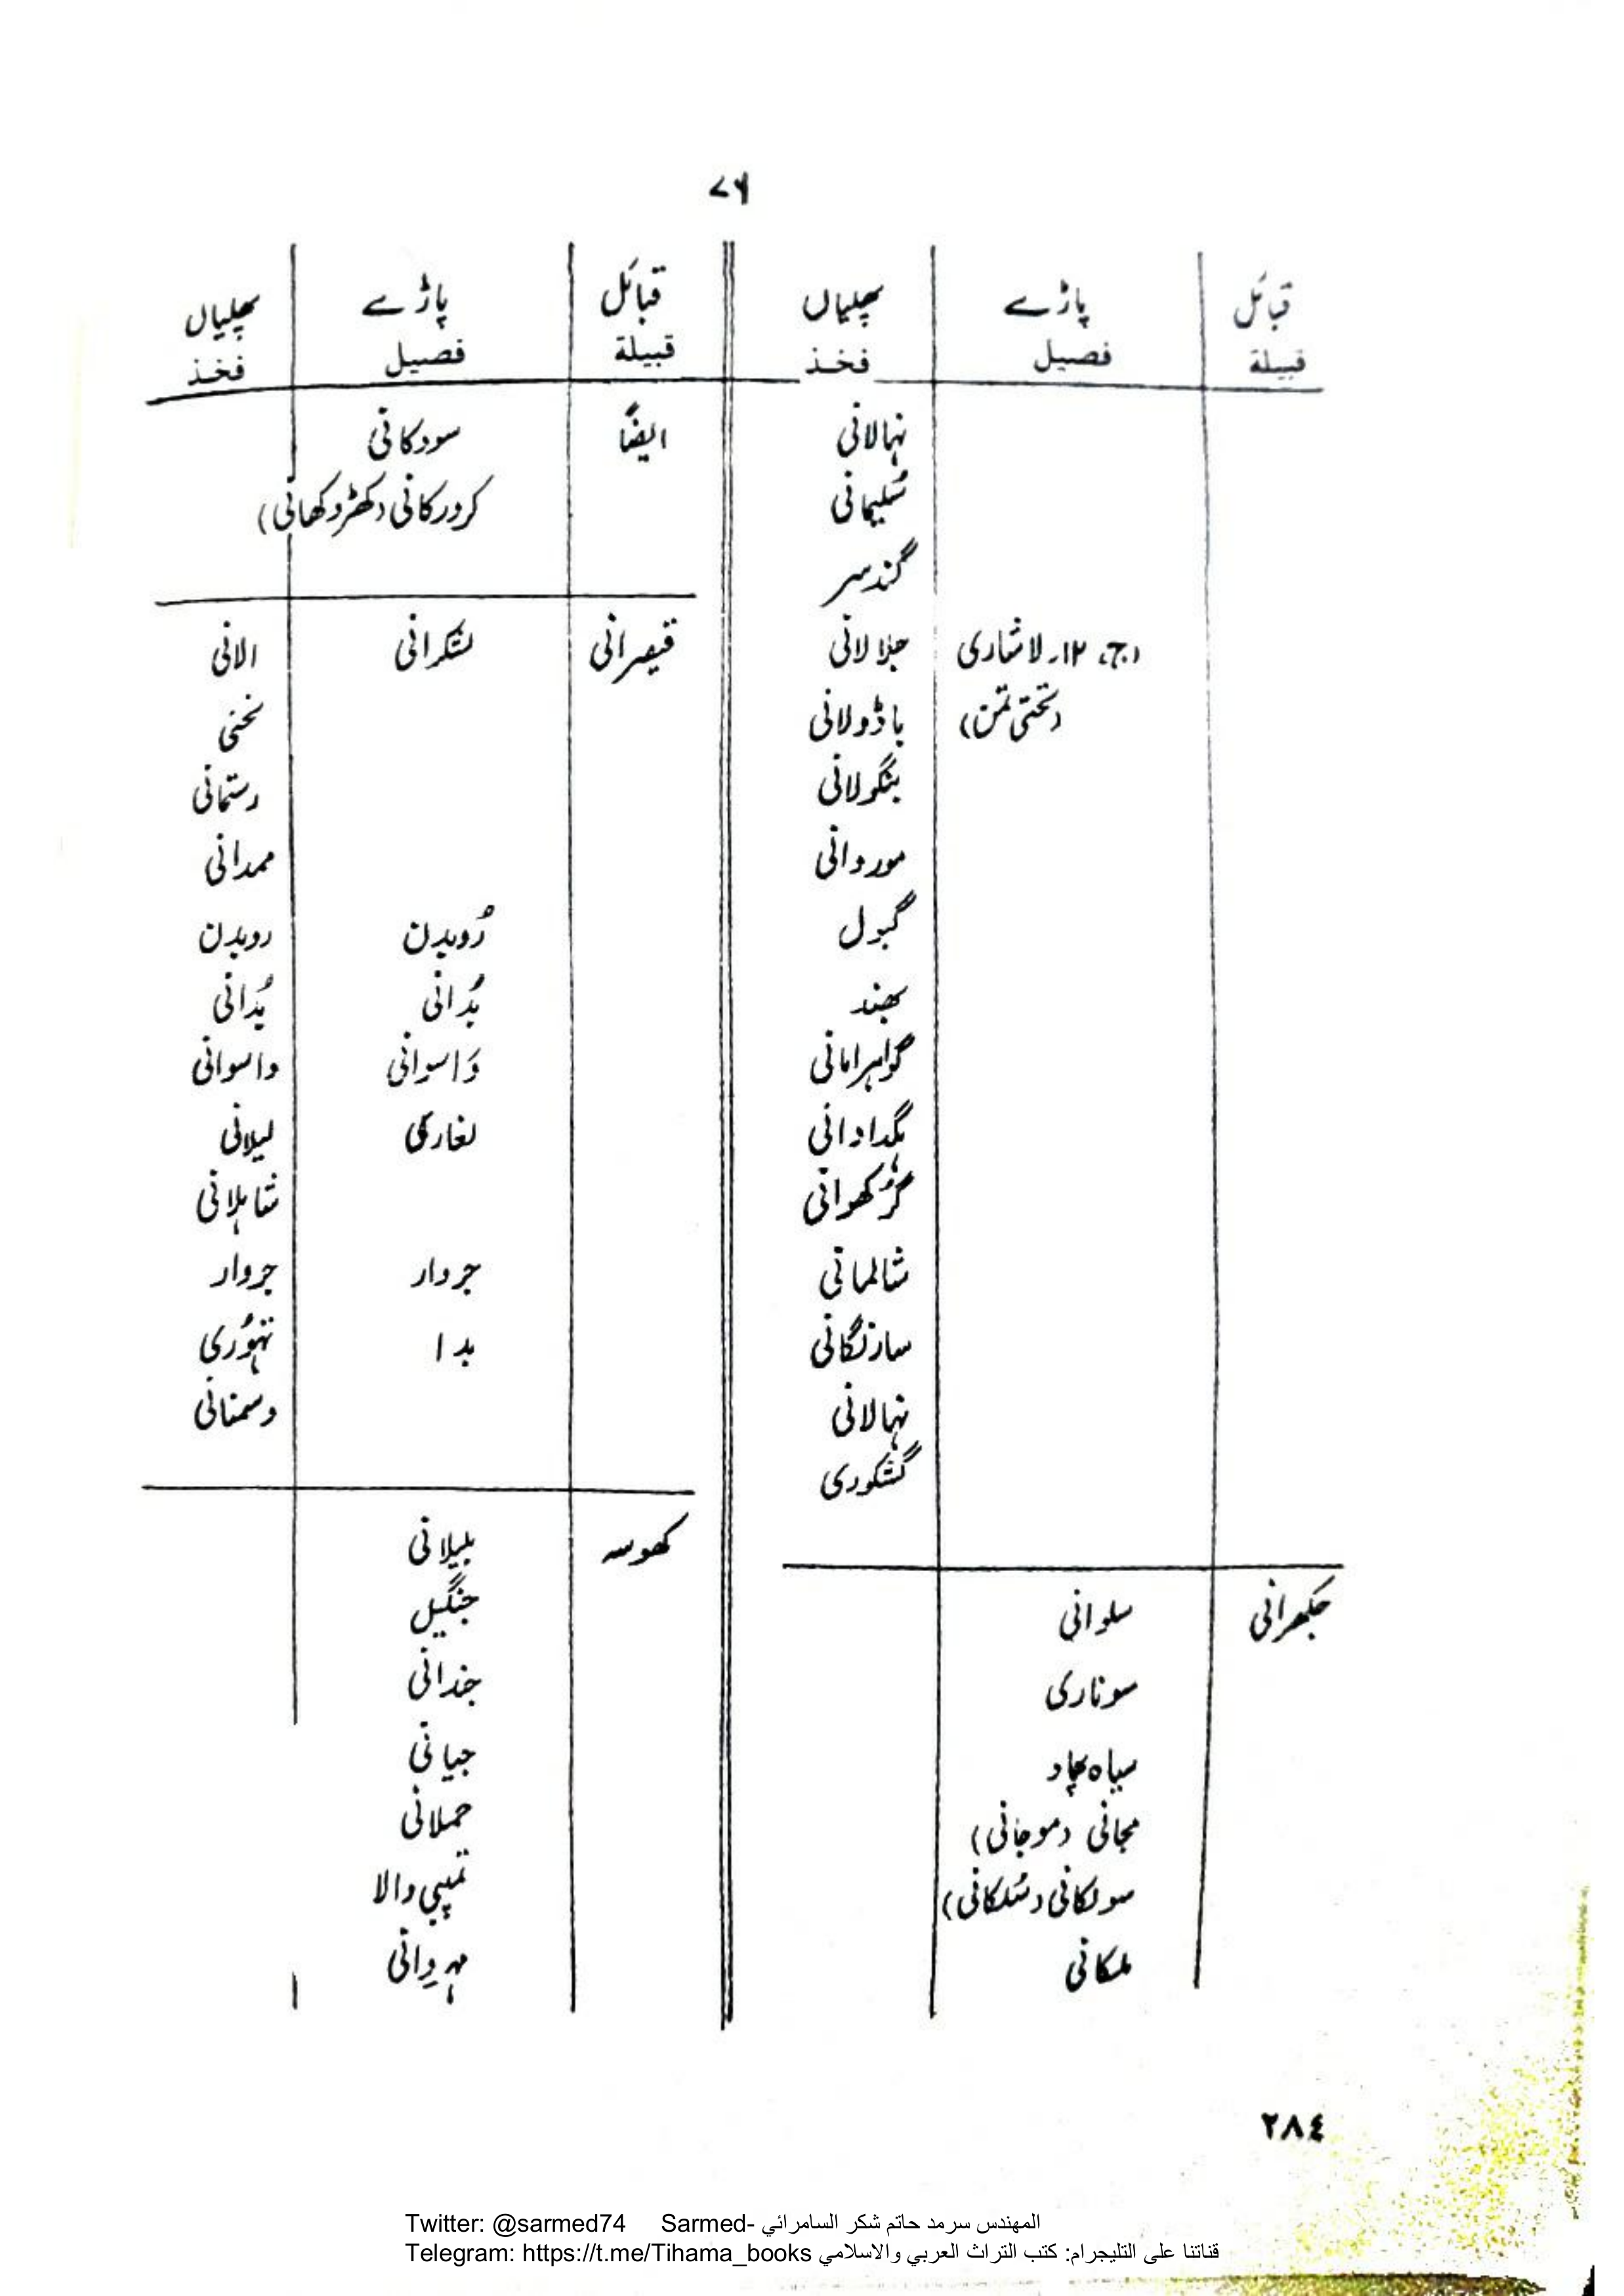 ۷۶
قبائل پاڑے پھلیاں
قبيلة فصيل فخذ
نہالانی
سُلیمانی
گندسر
(ج، ۱۲۔ لاشاری جلالانی
(تختی تمن) باڈولانی
بنگولانی
موردانی
گبول
بھند
گواہرامانی
بگدادانی
کھوانی
شالمانی
سازنگانی
نہالانی
گشکوری
جکھرانی سلوانی
سوناری
سیاہ پچاد
مجانی (موجانی)
سولکانی (سُلکانی)
ملکانی
قبائل پاڑے پھلیاں
قبيلة فصيل فخذ
ایضاً سودکانی
کرورکانی (کھڑوکھانی)
قیصرانی لشکرانی الانی
نخی
رستمانی
ممدانی
رُوبدن روبدن
بُدانی بُدانی
وَاسوانی واسوانی
لغاری لیلانی
شاہلانی
جردار جروار
بدا تہوُری
وسمنانی
کھوسہ بلیلانی
جنگیل
جندانی
جیانی
حملانی
تمپی والا
مہروانی
٢٨٤
Twitter: @sarmed74 Sarmed- المهندس سرمد حاتم شكر السامرائي
Telegram: https://t.me/Tihama_books قناتنا على التليجرام: كتب التراث العربي والاسلامي